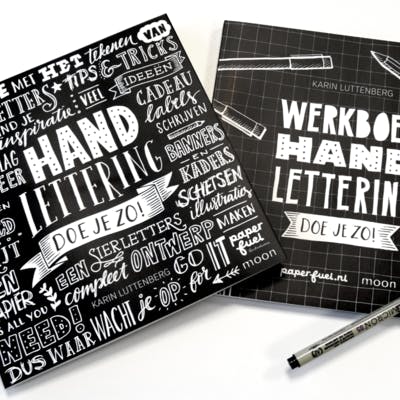 MET HET tekenen VAN
LETTERS TIPS & TRICKS
inspiratie VEEL IDEEËEN
CADEAU
labels
SCHRIJVEN
HAND
LETTERING
DOE JE ZO!
BANNERS
EN
KADERS
SCHETSEN
illustraties
MAKEN
EEN SIERLETTERS
compleet ONTWERP
KARIN LUTTENBERG
GO for IT
paper
fuel
moon
IS ALL YOU
NEED!
DUS WAAR WACHT je OP
KARIN LUTTENBERG
HAND
LETTERING
DOE JE ZO!
paperfuel.nl
moon
MICRON